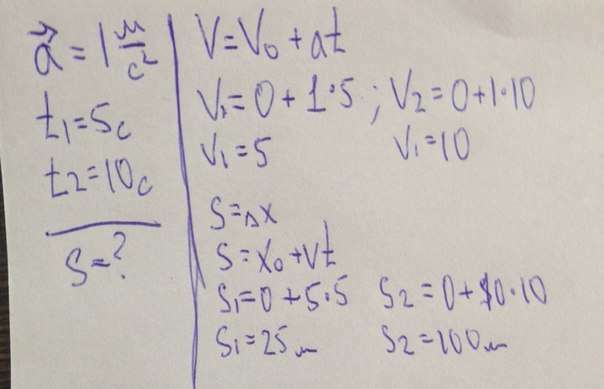 a⃗ = 1 м/с²
t₁=5с
t₂=10с
S=?
V=V₀+at
V₁=0+1·5 ; V₂=0+1·10
V₁=5 V₁=10
S=△X
S=X₀+Vt
S₁=0+5·5 S₂=0+10·10
S₁=25м S₂=100м